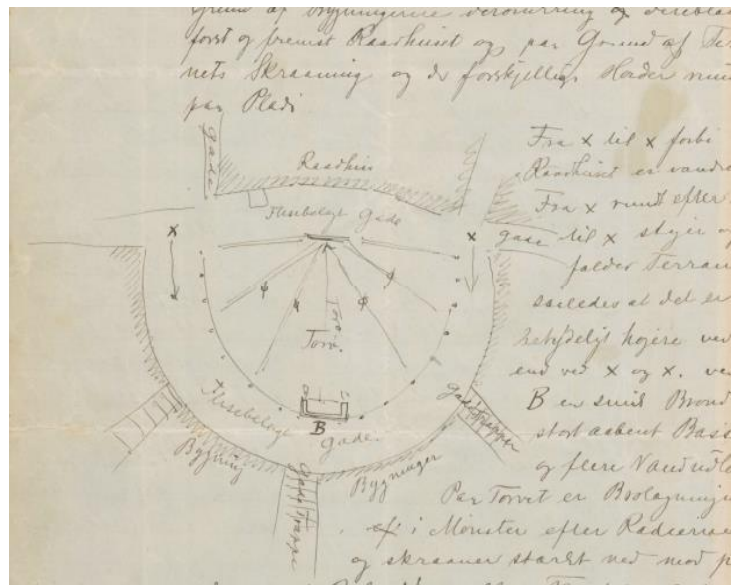 Grund af Bygningerne
først og fremst Raadhuset og paa Grund af Ter
nets Skraaning og de forskjellige
paa Plads
Gade
Raadhus
Flisebelagt Gade
x
x
Torv
Torv.
B
Flisebelagt Gade
Bygning
Bygninger
Gade Trappe
Gade Trappe
Fra x til x forbi
Raadhuset er vandre
Fra x rundt efter
gade til x stiger og
falder Terræn
saaledes at det er
betydeligt højere ved
end ved x og x. ved
B en smuk Brønd
stort aabent Bass
og flere Vandudlø
Paa Torvet er Brolægningen
i Mønster efter Radierne
og skraaner stærkt ned mod